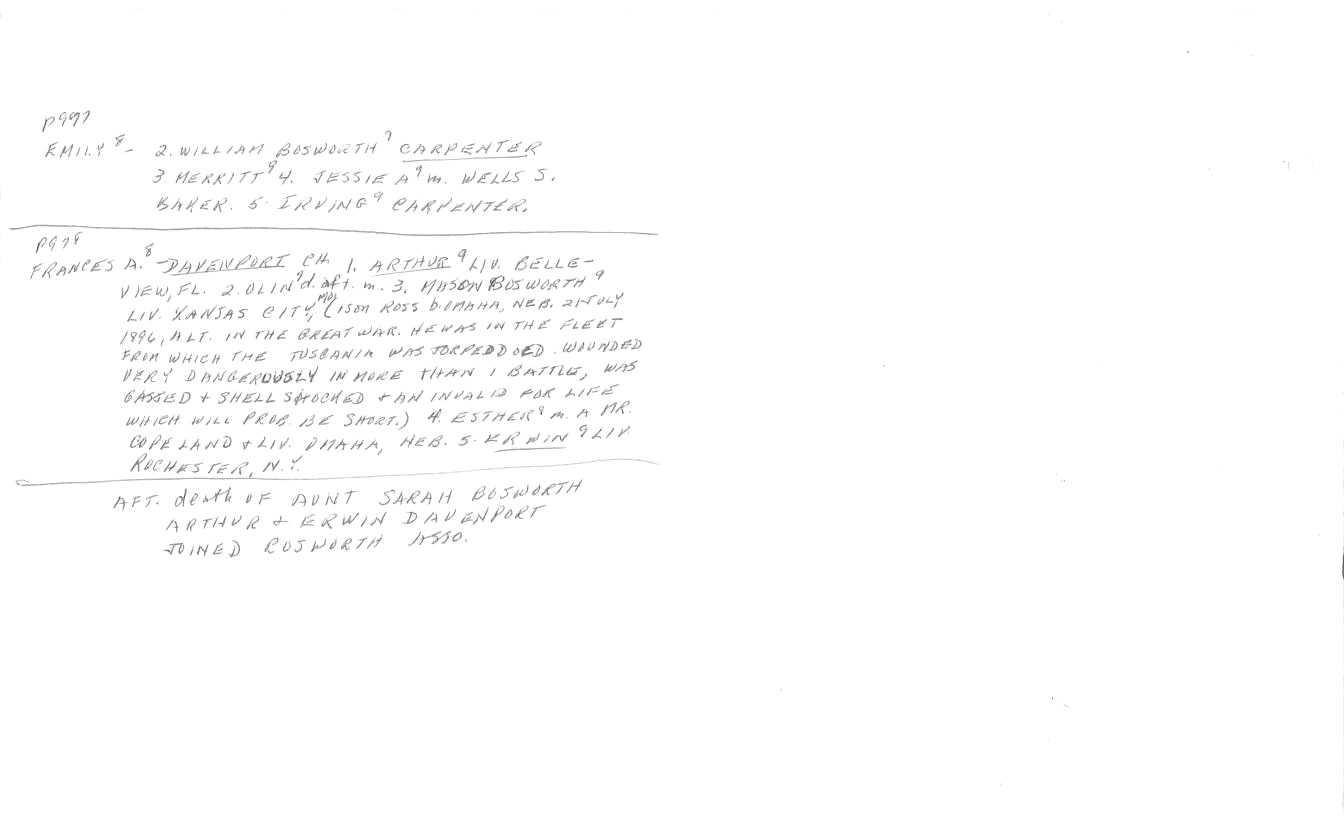 P997
EMILY⁸ - 2. WILLIAM BOSWORTH⁹ CARPENTER
3 MERRITT⁹ 4. JESSIE A⁹ m. WELLS S.
BAKER. 5. IRVING⁹ CARPENTER.
P978
FRANCES A.⁸ - DAVENPORT CH. 1. ARTHUR⁹ LIV. BELLE-
VIEW, FL. 2. OLIN⁹ d. aft. m. 3. MASON BOSWORTH⁹
LIV. KANSAS CITY, MO, (1 son ROSS b. OMAHA, NEB. 21 JULY
1896, A LT. IN THE GREAT WAR. HE WAS IN THE FLEET
FROM WHICH THE TUSCANIA WAS TORPEDOED. WOUNDED
VERY DANGEROUSLY IN MORE THAN 1 BATTLE, WAS
GASSED + SHELL SHOCKED + AN INVALID FOR LIFE
WHICH WILL PROB. BE SHORT.) 4. ESTHER⁹ m. A MR.
COPELAND + LIV. OMAHA, NEB. 5. ERWIN⁹ LIV
ROCHESTER, N.Y.
AFT. death OF AUNT SARAH BOSWORTH
ARTHUR + ERWIN DAVENPORT
JOINED BOSWORTH ASSO.